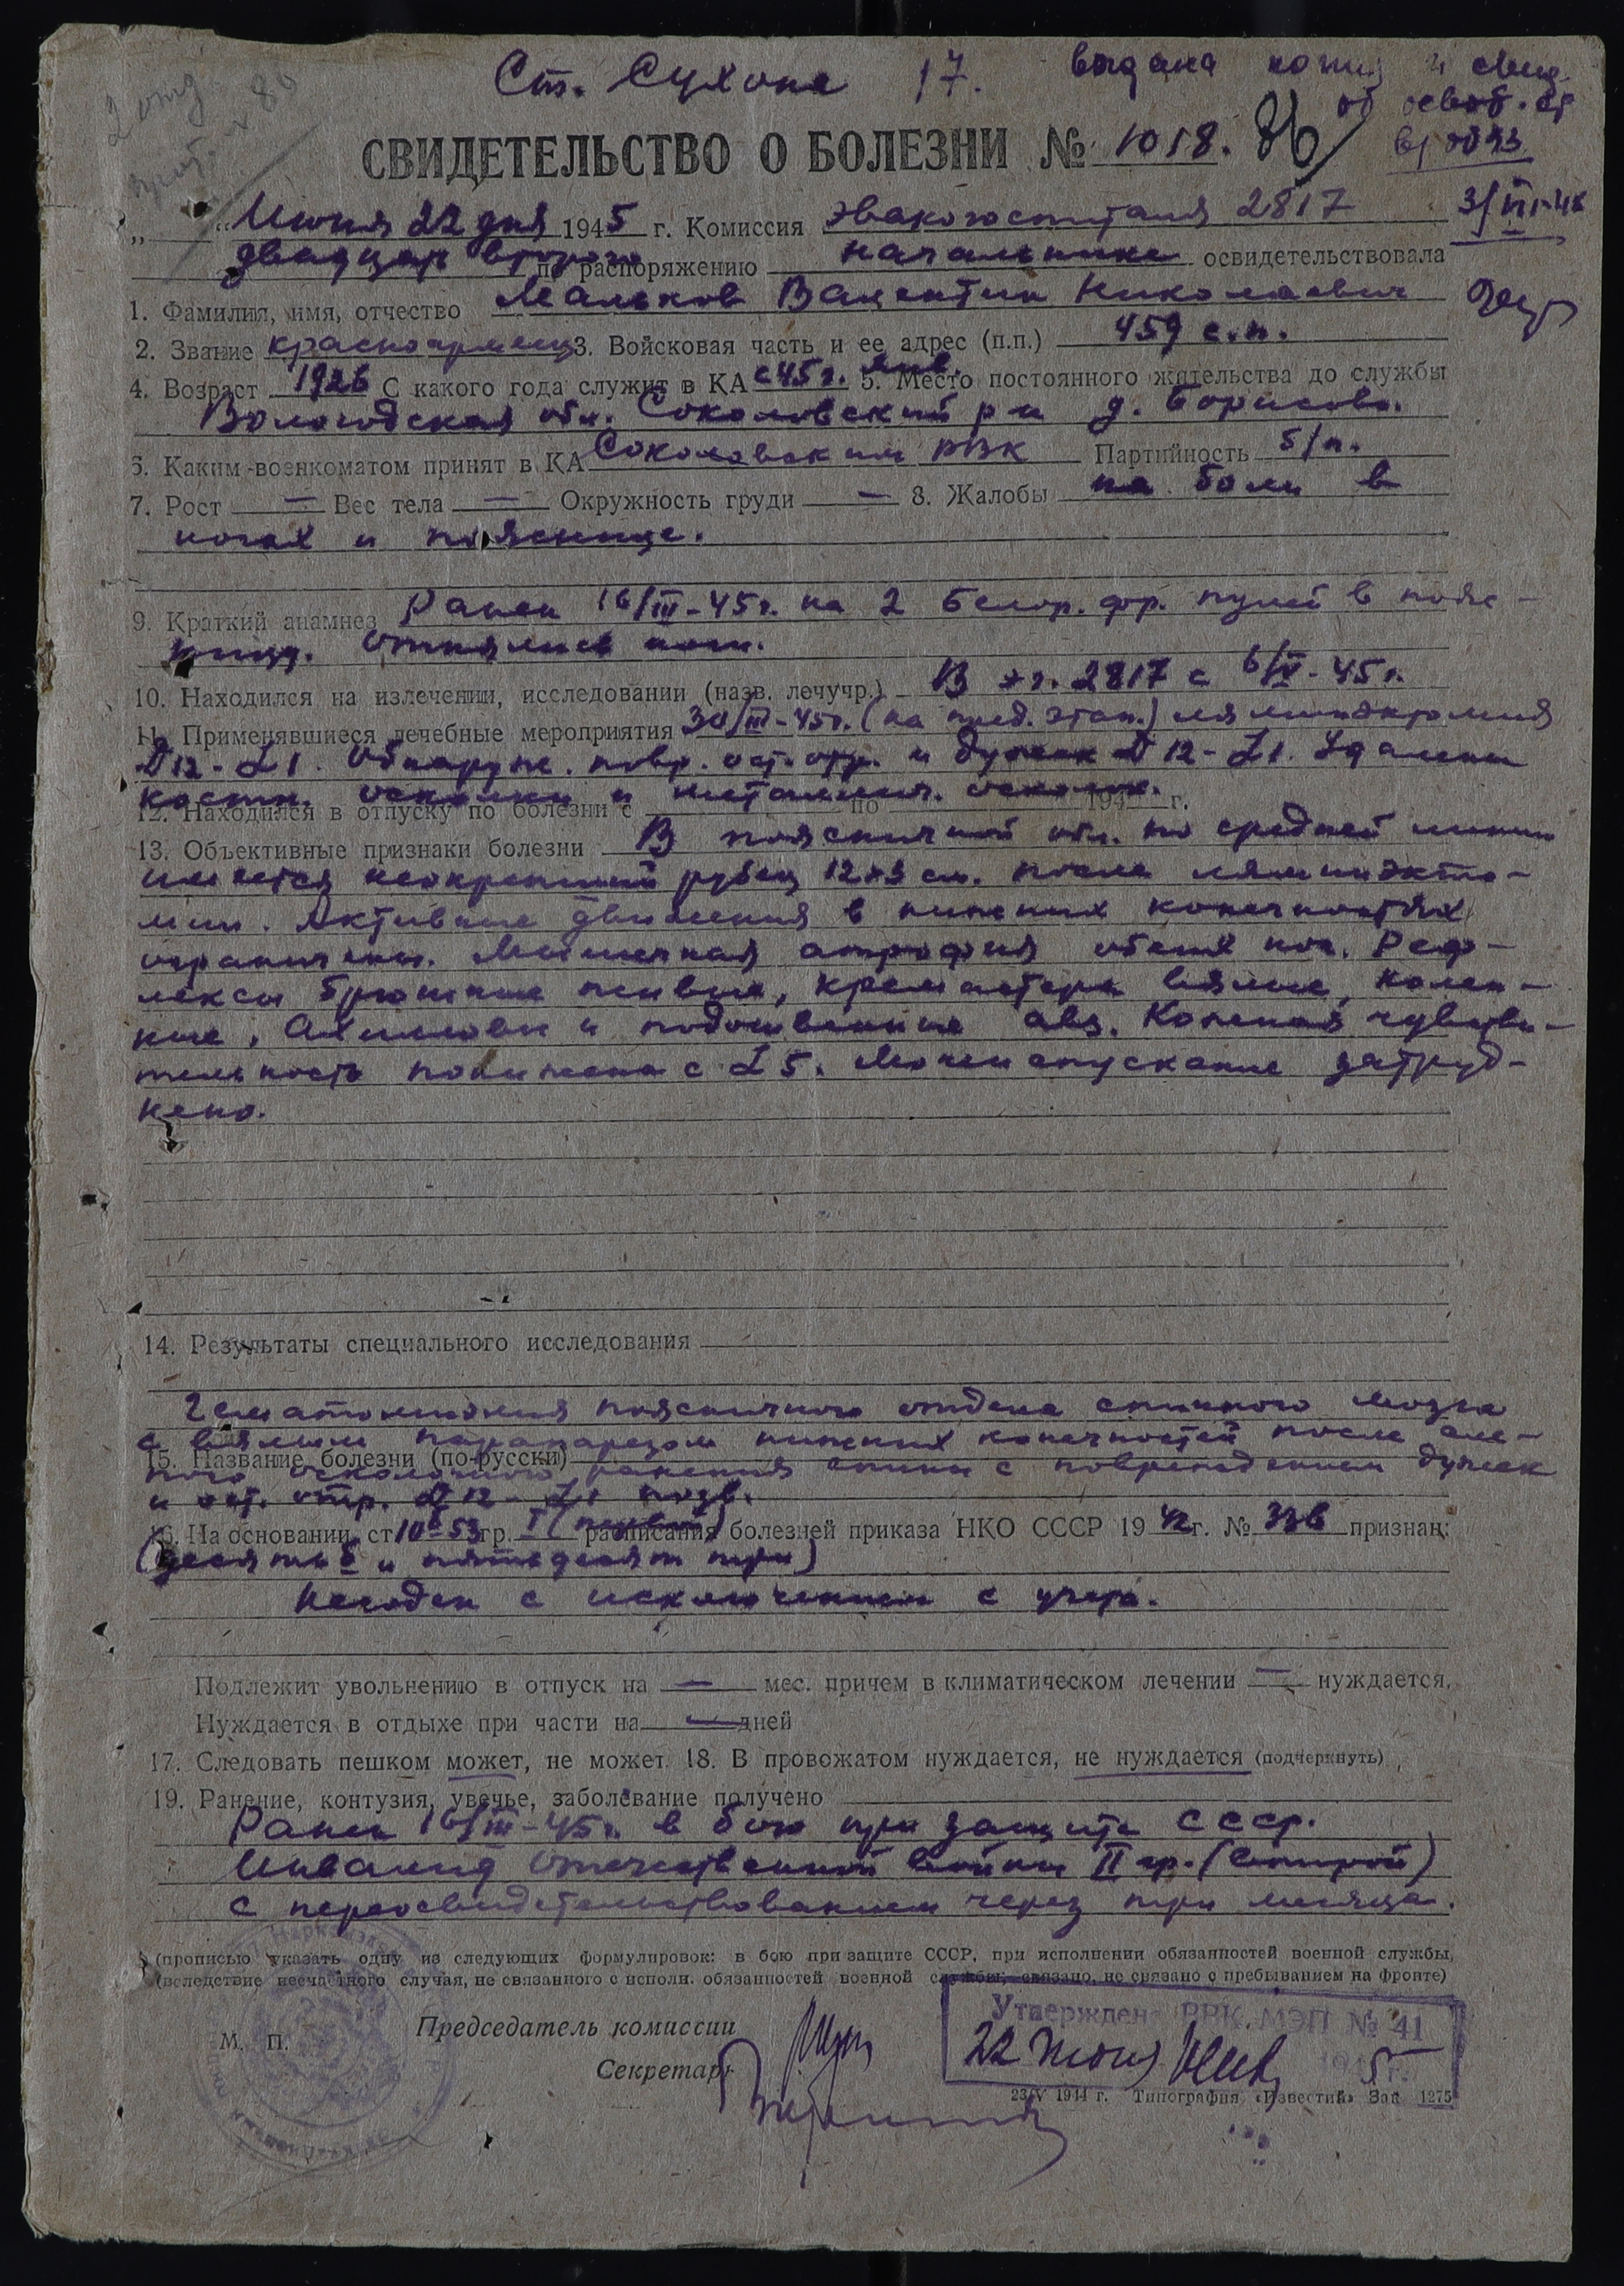 Ст. Сухона 17. выдана копия и свид.
об освоб. от
в/обяз
3/VII-46
2 отд
СВИДЕТЕЛЬСТВО О БОЛЕЗНИ № 1018. 86
„ “ Июня 22 дня 1945 г. Комиссия эвакогоспиталя 2817
двадцать второго по распоряжению начальника освидетельствовала
1. Фамилия, имя, отчество Мальков Валентин Николаевич
2. Звание красноармеец 3. Войсковая часть и ее адрес (п.п.) 459 с.п.
4. Возраст 1926 С какого года служит в КА с 45 г. янв. 5. Место постоянного жительства до службы
Вологодская обл. Соколовский р-н д. Борисово.
6. Каким военкоматом принят в КА Соколовским РВК Партийность б/п.
7. Рост — Вес тела — Окружность груди — 8. Жалобы на боли в
ногах и пояснице.
9. Краткий анамнез Ранен 16/III-45 г. на 2 Белор. фр. пулей в пояс-
ницу. Отнялись ноги.
10. Находился на излечении, исследовании (назв. лечучр.) В эг. 2817 с 6/V-45 г.
11. Применявшиеся лечебные мероприятия 30/III-45 г. (на пред. этап.) ляминэктомия
D 12 - L 1. Обнаруж. повр. ост. отр. и дужек D 12 - L 1. Удалены
костн. осколки и металлич. осколок.
12. Находился в отпуску по болезни с по 194 г.
13. Объективные признаки болезни В поясничной обл. по средней линии
имеется неокрепший рубец 12×3 см. после ляминэкто-
мии. Активные движения в нижних конечностях
ограничены. Мышечная атрофия обеих ног. Реф-
лексы брюшные живые, кремастера вялые, колен-
ные, Ахилловы и подошвенные абз. Кожная чувстви-
тельность понижена с L 5. Мочеиспускание затруд-
нено.
14. Результаты специального исследования
Гематомиэлия поясничного отдела спинного мозга
с вялым парапарезом нижних конечностей после сле-
15. Название болезни (по-русски)
пого осколочного ранения спины с повреждением дужек
и ост. отр. D 12 - L 1 позв.
16. На основании ст 10б 53 гр. I (первой) расписания болезней приказа НКО СССР 1942 г. № 336 признан:
(десять б и пятьдесят три)
Негоден с исключением с учета.
Подлежит увольнению в отпуск на — мес. причем в климатическом лечении — нуждается.
Нуждается в отдыхе при части на — дней
17. Следовать пешком может, не может. 18. В провожатом нуждается, не нуждается (подчеркнуть)
19. Ранение, контузия, увечье, заболевание получено
Ранен 16/III-45 г. в бою при защите СССР.
Инвалид Отечественной войны II гр. (второй)
с переосвидетельствованием через три месяца.
(прописью указать одну из следующих формулировок: в бою при защите СССР, при исполнении обязанностей военной службы,
(вследствие несчастного случая, не связанного с исполн. обязанностей военной службы, связано, не связано с пребыванием на фронте)
Утвержден ВВК МЭП № 41
22 июня 1945 г.
М. П. Председатель комиссии
Секретарь
23/V 1944 г. Типография «Известий» Зак 1275